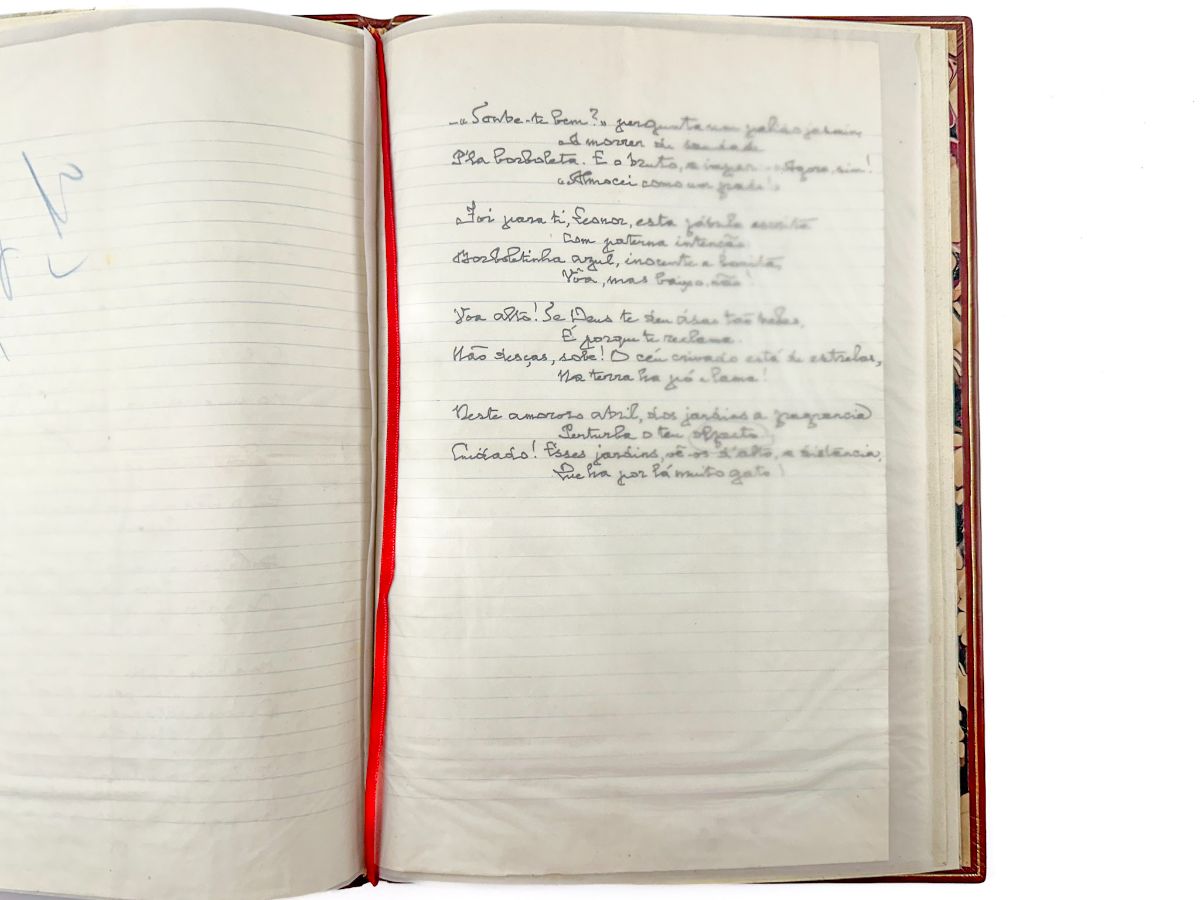 —«Soube-te bem?» pergunta um palido jasmin,
A morrer de saudade
P'la borboleta. E o bruto, a inspar: —«Agora, sim!
«Almocei como um frade!»
Foi para ti, Leonor, esta fábula escrita
Com paterna intenção.
Borboletinha azul, inocente e bonita,
Vôa, mas baixo, não!
Voa alto! Se Deus te deu ásas tão belas,
É porque te reclama.
Não desças, sobe! O ceu crivado está de estrelas,
Na terra ha pó e lama!
Neste amoroso abril, dos jardins a fragrancia
Perturba o teu olfacto.
Cuidado! Esses jardins, vê-os d'alto, a distância,
Que ha por lá muito gato!